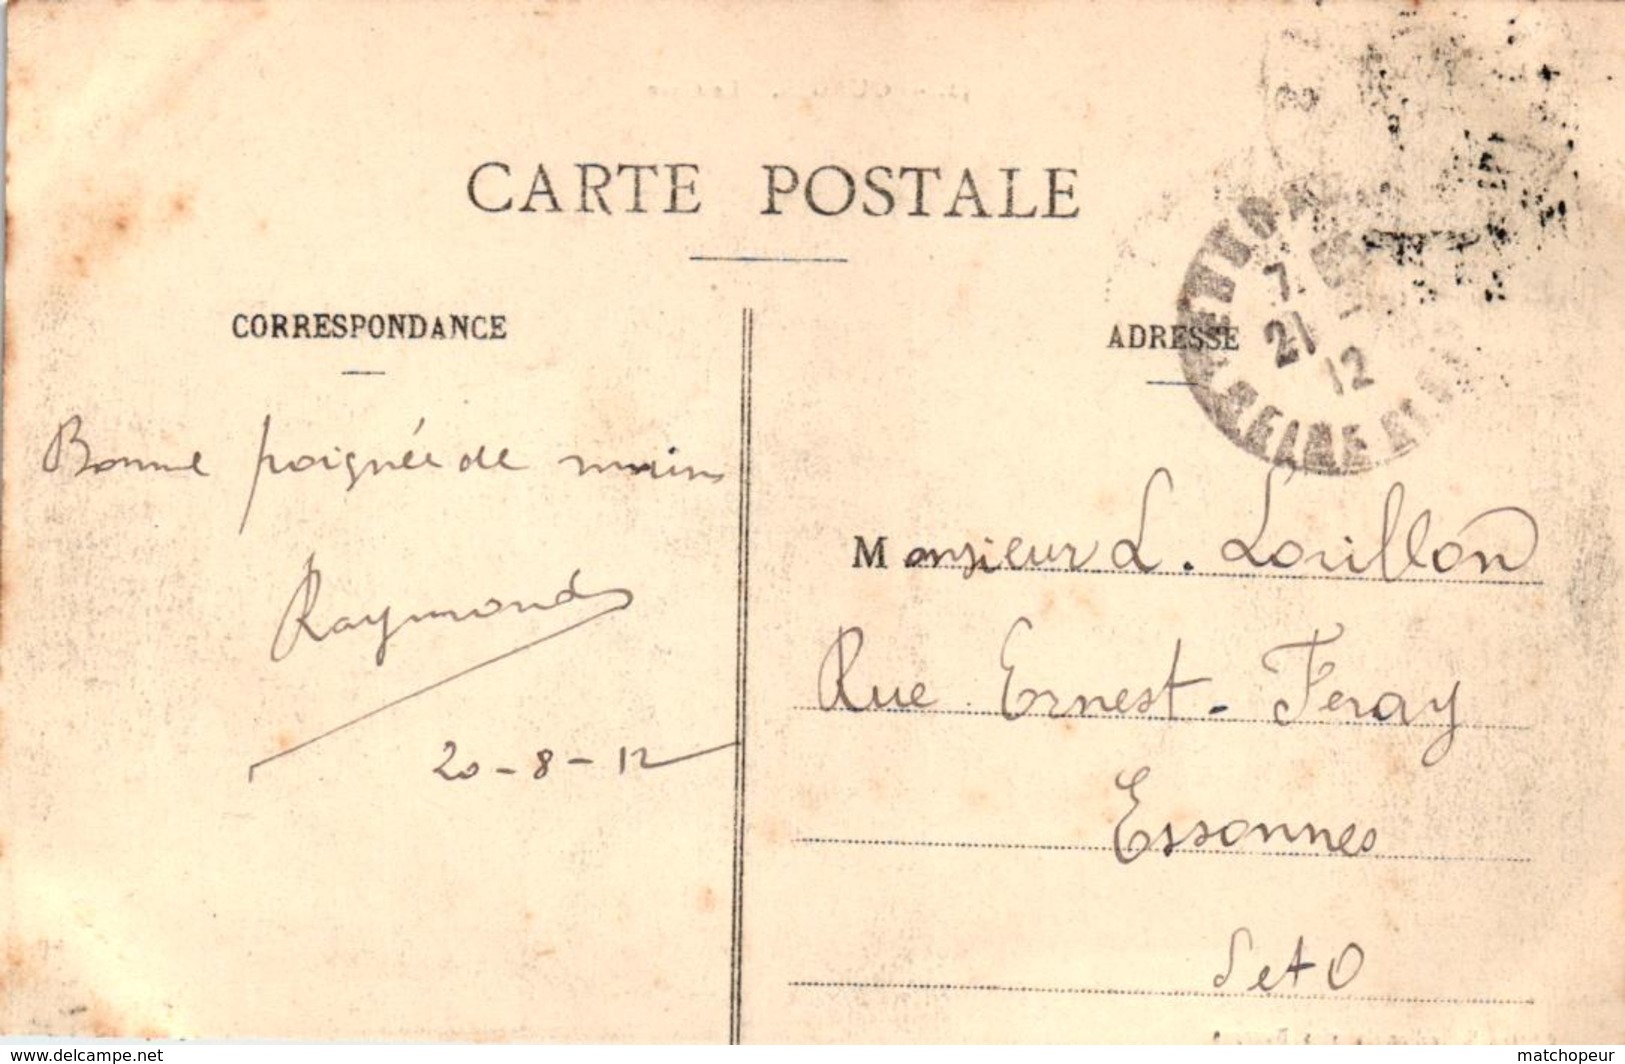 CARTE POSTALE
CORRESPONDANCE
Bonne poignée de mains
Raymond
20-8-12
ADRESSE
7
21
12
SEINE ET
Monsieur L. Lorillon
Rue Ernest-Feray
Essonnes
S et O
www.delcampe.net
matchopeur